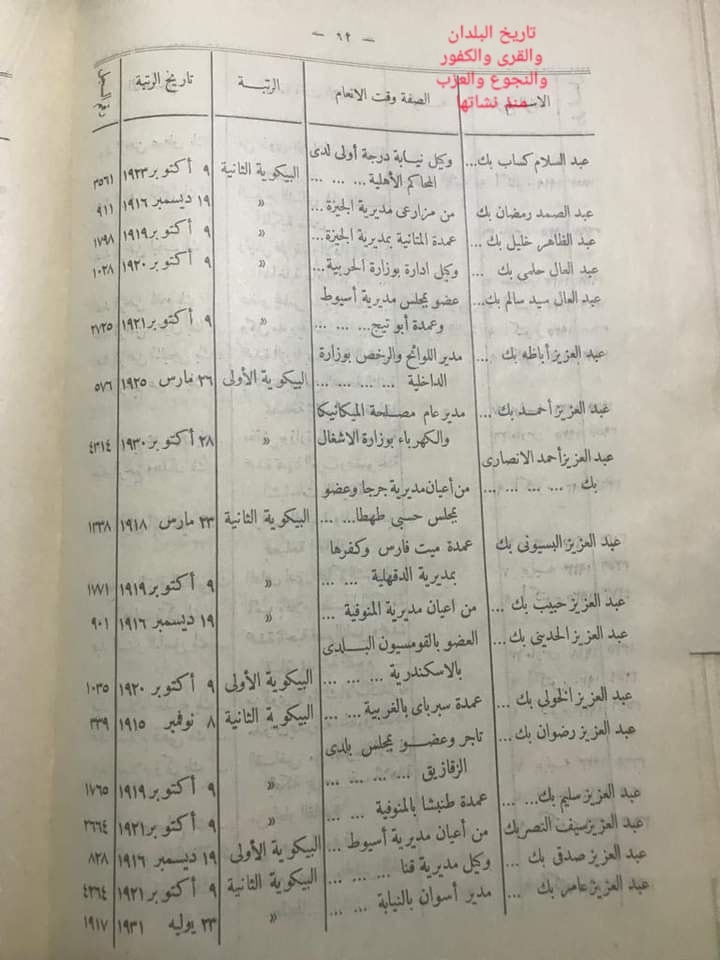 — ٦٢ —
تاريخ البلدان
والقرى والكفور
والنجوع والعزب
منذ نشاتها
الاســم الصفة وقت الانعام الرتبـة تاريخ الرتبة
عبد السلام كساب بك... وكيل نيابة درجة أولى لدى
المحاكم الأهلية ... ... ... البيكوية الثانية ٩ أكتوبر ١٩٢٣ ٣٥٦١
عبد الصمد رمضان بك من مزارعى مديرية الجيزة... » ١٩ ديسمبر ١٩١٦ ٩١١
عبد الظاهر خليل بك ... عمدة المتانية بمديرية الجيزة... » ٩ أكتوبر ١٩١٩ ١٧٩٨
عبد العال حلمى بك ... وكيل ادارة بوزارة الحربية... » ٩ أكتوبر ١٩٢٠ ١٠٢٨
عبد العال سيد سالم بك... عضو بمجلس مديرية أسيوط
وعمدة أبو تيج... ... ... » ٩ أكتوبر ١٩٢١ ٢٧٢٥
عبد العزيز أباظه بك ... مدير اللوائح والرخص بوزارة
الداخلية ... ... ... ... البيكوية الأولى ٢٦ مارس ١٩٢٥ ٥٧٦
عبد العزيز أحمـد بك ... مدير عام مصـلحة الميكانيكا
والكهرباء بوزارة الاشغال » ٢٨ أكتوبر ١٩٣٠ ٤٣١٤
عبد العزيز أحمد الانصارى
بك ... ... ... ... من أعيان مديرية جرجا وعضو
بمجلس حسبى طهطا... ... البيكوية الثانية ٢٣ مارس ١٩١٨ ١٣٣٨
عبد العزيز البسيونى بك عمدة ميت فارس وكفرها
بمديرية الدقهلية ... ... » ٩ أكتوبر ١٩١٩ ١٧٧١
عبد العزيز حبيب بك ... من اعيان مديرية المنوفية ... » ١٩ ديسمبر ١٩١٦ ٩٠١
عبد العزيز الحدينى بك ... العضو بالقومسيون البـلـدى
بالاسكندرية ... ... ... البيكوية الأولى ٩ أكتوبر ١٩٢٠ ١٠٣٥
عبد العزيز الخولى بك ... عمدة سبرباى بالغربية ... ... البيكوية الثانية ٨ نوفمبر ١٩١٥ ٣٣٩
عبد العزيز رضوان بك ... تاجر وعضـو بمجلس بلدى
الزقازيق ... ... ... ... » ٩ أكتوبر ١٩١٩ ١٧٦٥
عبد العزيز سليم بك... ... عمدة طنبشا بالمنوفية ... ... » ٩ أكتوبر ١٩٢١ ٢٦٦٤
عبد العزيز سيف النصر بك من أعيان مديرية أسيوط ... البيكوية الأولى ١٩ ديسمبر ١٩١٦ ٨٢٨
عبد العزيز صدقى بك ... وكيل مديرية قنا ... ... ... البيكوية الثانية ٩ أكتوبر ١٩٢١ ٤٢٦٤
عبد العزيز عامر بك ... مدير أسوان بالنيابة ... ... » ٢٣ يوليه ١٩٣١ ١٩١٧